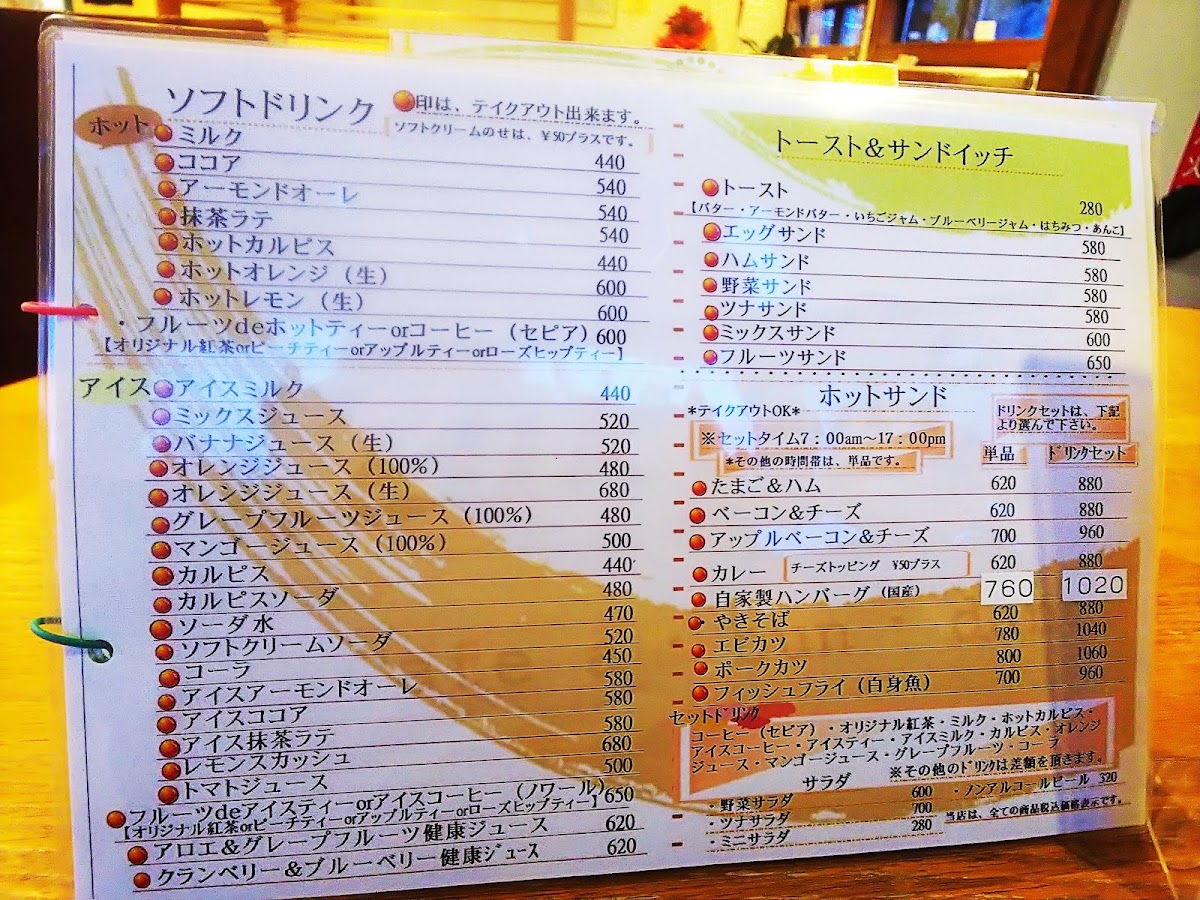 ソフトドリンク
●印は、テイクアウト出来ます。
ソフトクリームのせは、¥50プラスです。
ホット
ミルク 440
ココア 540
アーモンドオーレ 540
抹茶ラテ 540
ホットカルピス 440
ホットオレンジ（生） 600
ホットレモン（生） 600
・フルーツdeホットティーorコーヒー（セピア） 600
【オリジナル紅茶orピーチティーorアップルティーorローズヒップティー】
アイス
アイスミルク 440
ミックスジュース 520
バナナジュース（生） 520
オレンジジュース（100%） 480
オレンジジュース（生） 680
グレープフルーツジュース（100%） 480
マンゴージュース（100%） 500
カルピス 440
カルピスソーダ 480
ソーダ水 470
ソフトクリームソーダ 520
コーラ 450
アイスアーモンドオーレ 580
アイスココア 580
アイス抹茶ラテ 580
レモンスカッシュ 680
トマトジュース 500
フルーツdeアイスティーorアイスコーヒー（ノワール） 650
【オリジナル紅茶orピーチティーorアップルティーorローズヒップティー】
アロエ＆グレープフルーツ健康ジュース 620
クランベリー＆ブルーベリー健康ジュース 620
トースト＆サンドイッチ
トースト 280
【バター・アーモンドバター・いちごジャム・ブルーベリージャム・はちみつ・あんこ】
エッグサンド 580
ハムサンド 580
野菜サンド 580
ツナサンド 580
ミックスサンド 600
フルーツサンド 650
ホットサンド
*テイクアウトOK*
ドリンクセットは、下記
より選んで下さい。
※セットタイム7：00am～17：00pm
*その他の時間帯は、単品です。
単品 ドリンクセット
たまご＆ハム 620 880
ベーコン＆チーズ 620 880
アップルベーコン＆チーズ 700 960
カレー チーズトッピング ¥50プラス 620 880
自家製ハンバーグ（国産） 760 1020
やきそば 620 880
エビカツ 780 1040
ポークカツ 800 1060
フィッシュフライ（白身魚） 700 960
セットドリンク
コーヒー（セピア）・オリジナル紅茶・ミルク・ホットカルピス・
アイスコーヒー・アイスティー・アイスミルク・カルピス・オレンジ
ジュース・マンゴージュース・グレープフルーツ・コーラ
※その他のドリンクは差額を頂きます。
サラダ
・野菜サラダ 600
・ツナサラダ 700
・ミニサラダ 280
・ノンアルコールビール 320
当店は、全ての商品税込価格表示です。